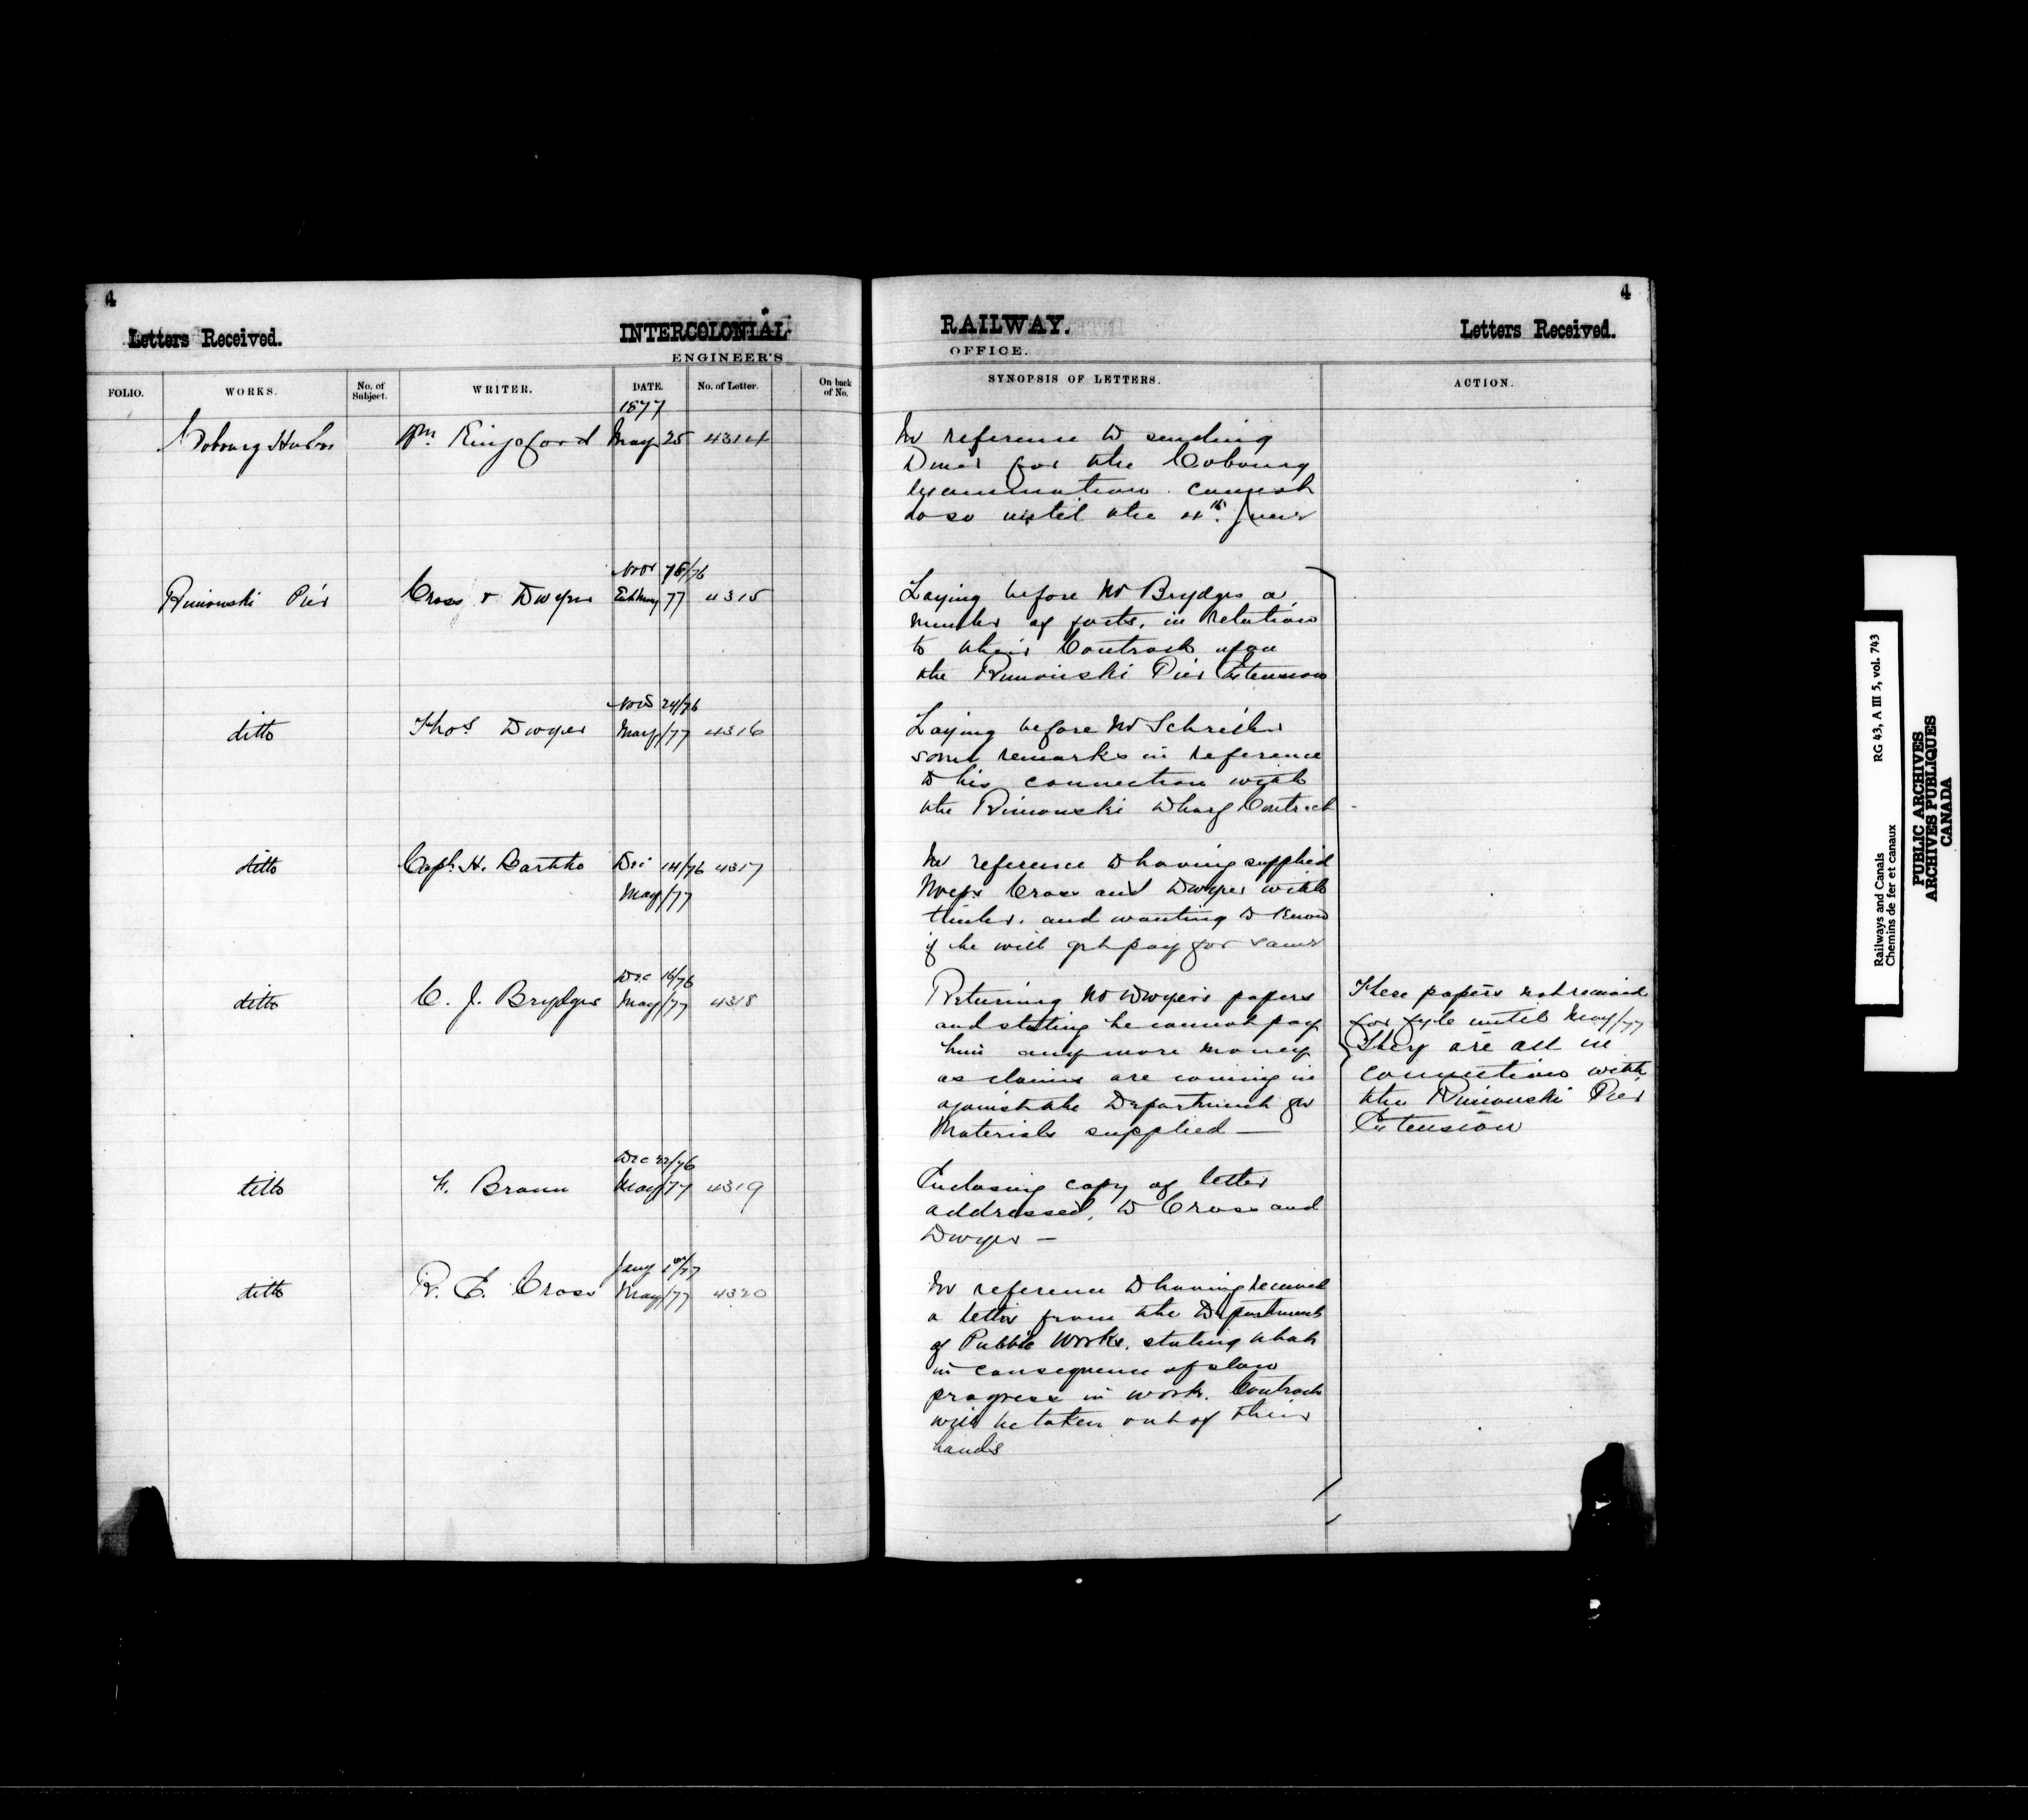 4
Letters Received.
INTERCOLONIAL
ENGINEER'S
FOLIO. WORKS. No. of Subject. WRITER. DATE. No. of Letter. On back of No.
1877
Cobourg Harbor Wm Kingsford May 25 4314
Nov 76
Rimouski Pier Cross & Dwyer May 77 4315
Nov 24/76
ditto Thos Dwyer May/77 4316
ditto Capt. H. Dec 14/76 4317
May/77
Dec 16/76
ditto C. J. Brydges May/77 4318
Dec 22/76
ditto F. Braun May/77 4319
Jany 1st/77
ditto R. E. Cross May/77 4320
4
RAILWAY.
OFFICE.
Letters Received.
SYNOPSIS OF LETTERS. ACTION.
In reference to sending
for the Cobourg
Examination. cannot
do so until the 4th. June
Laying before Mr Brydges a
number of facts, in relation
to their Contract upon
the Rimouski Pier Extension
Laying before Mr Schreiber
some remarks in reference
to his connection with
the Rimouski Wharf Contract
In reference to having supplied
Messrs Cross and Dwyer with
timber. and wanting to know
if he will get pay for same
Returning Mr Dwyer's papers
and stating he cannot pay
him any more money
as claims are coming in
against the Department for
Materials supplied —
Enclosing copy of letter
addressed, to Cross and
Dwyer —
In reference to having received
a letter from the Department
of Public Works. stating that
in consequence of slow
progress in work. Contract
will be taken out of their
hands
These papers not received
for fyle until May/77
They are all in
connection with
the Rimouski Pier
Extension
Railways and Canals RG 43, A III 5, vol. 743
Chemins de fer et canaux
PUBLIC ARCHIVES
ARCHIVES PUBLIQUES
CANADA